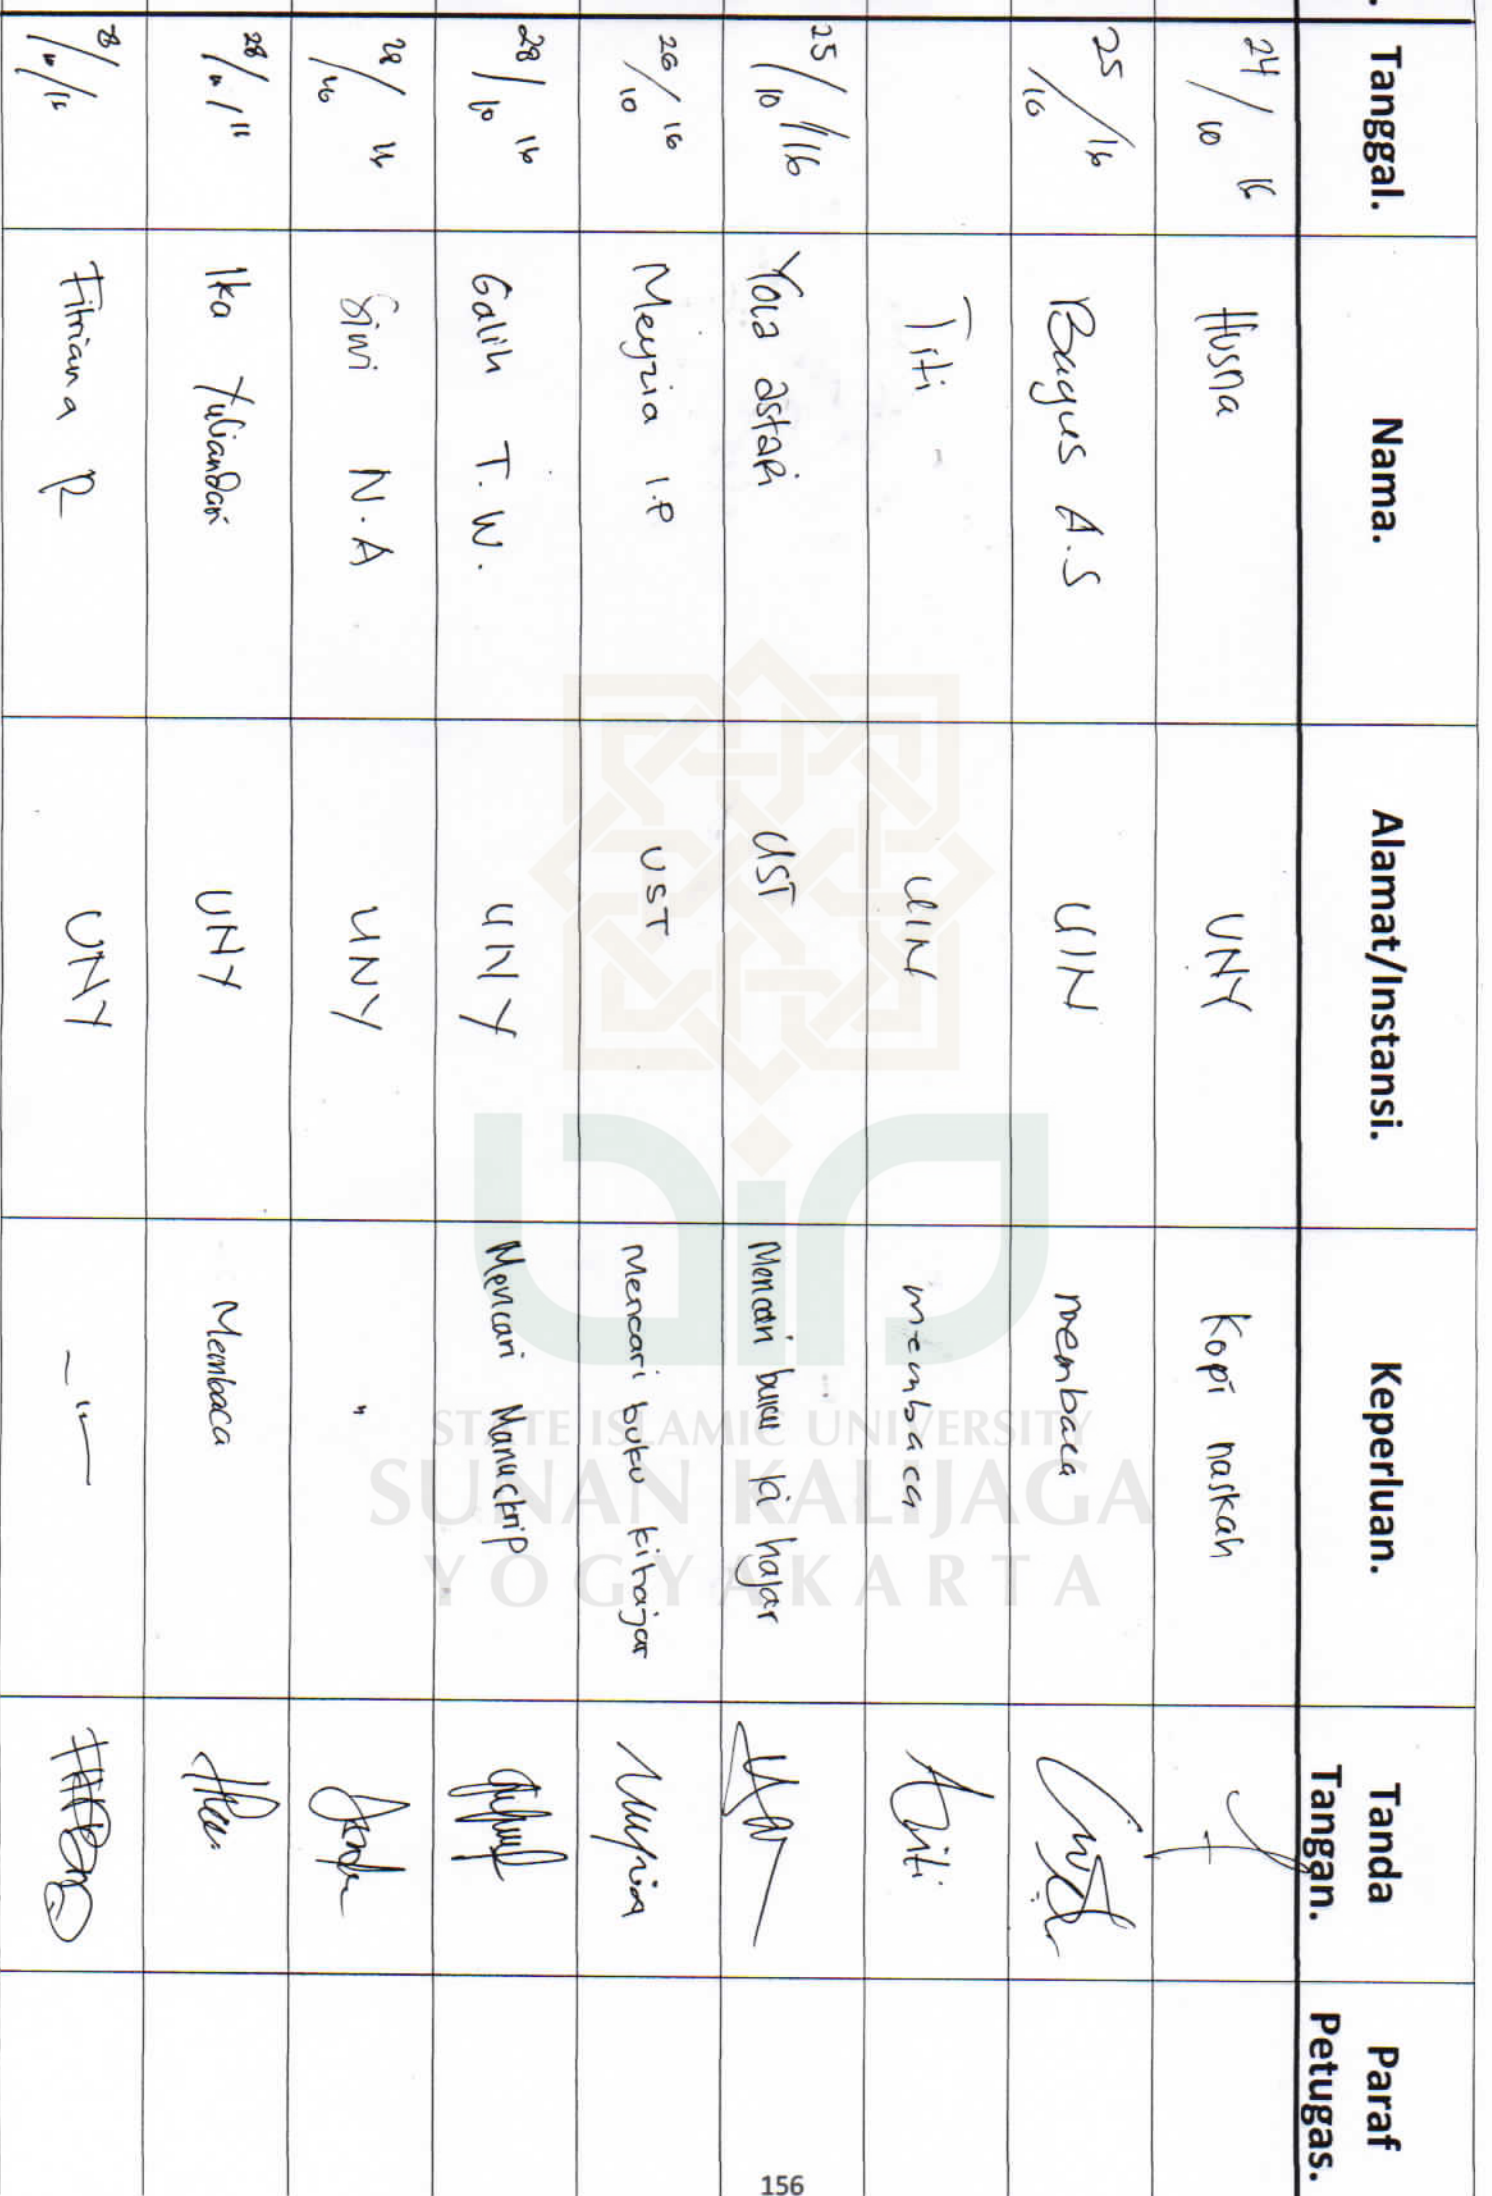 Tanggal. Nama. Alamat/Instansi. Keperluan. Tanda Tangan. Paraf Petugas.
24/10 16 Husna UNY Kopi naskah
25/10/16 Bagus A.S UIN membaca
Titi UIN membaca Titi
25/10/16 Yola astari UST Mencari buku ki hajar
26/10 16 Meyzia I.P UST Mencari buku kihajar
28/10 16 Galih T.W. UNY Mencari Manuskrip
Siwi N.A UNY "
28/10/16 Ika Yuliandari UNY Membaca
Fitriana R UNY — " —
STATE ISLAMIC UNIVERSITY
SUNAN KALIJAGA
YOGYAKARTA
156